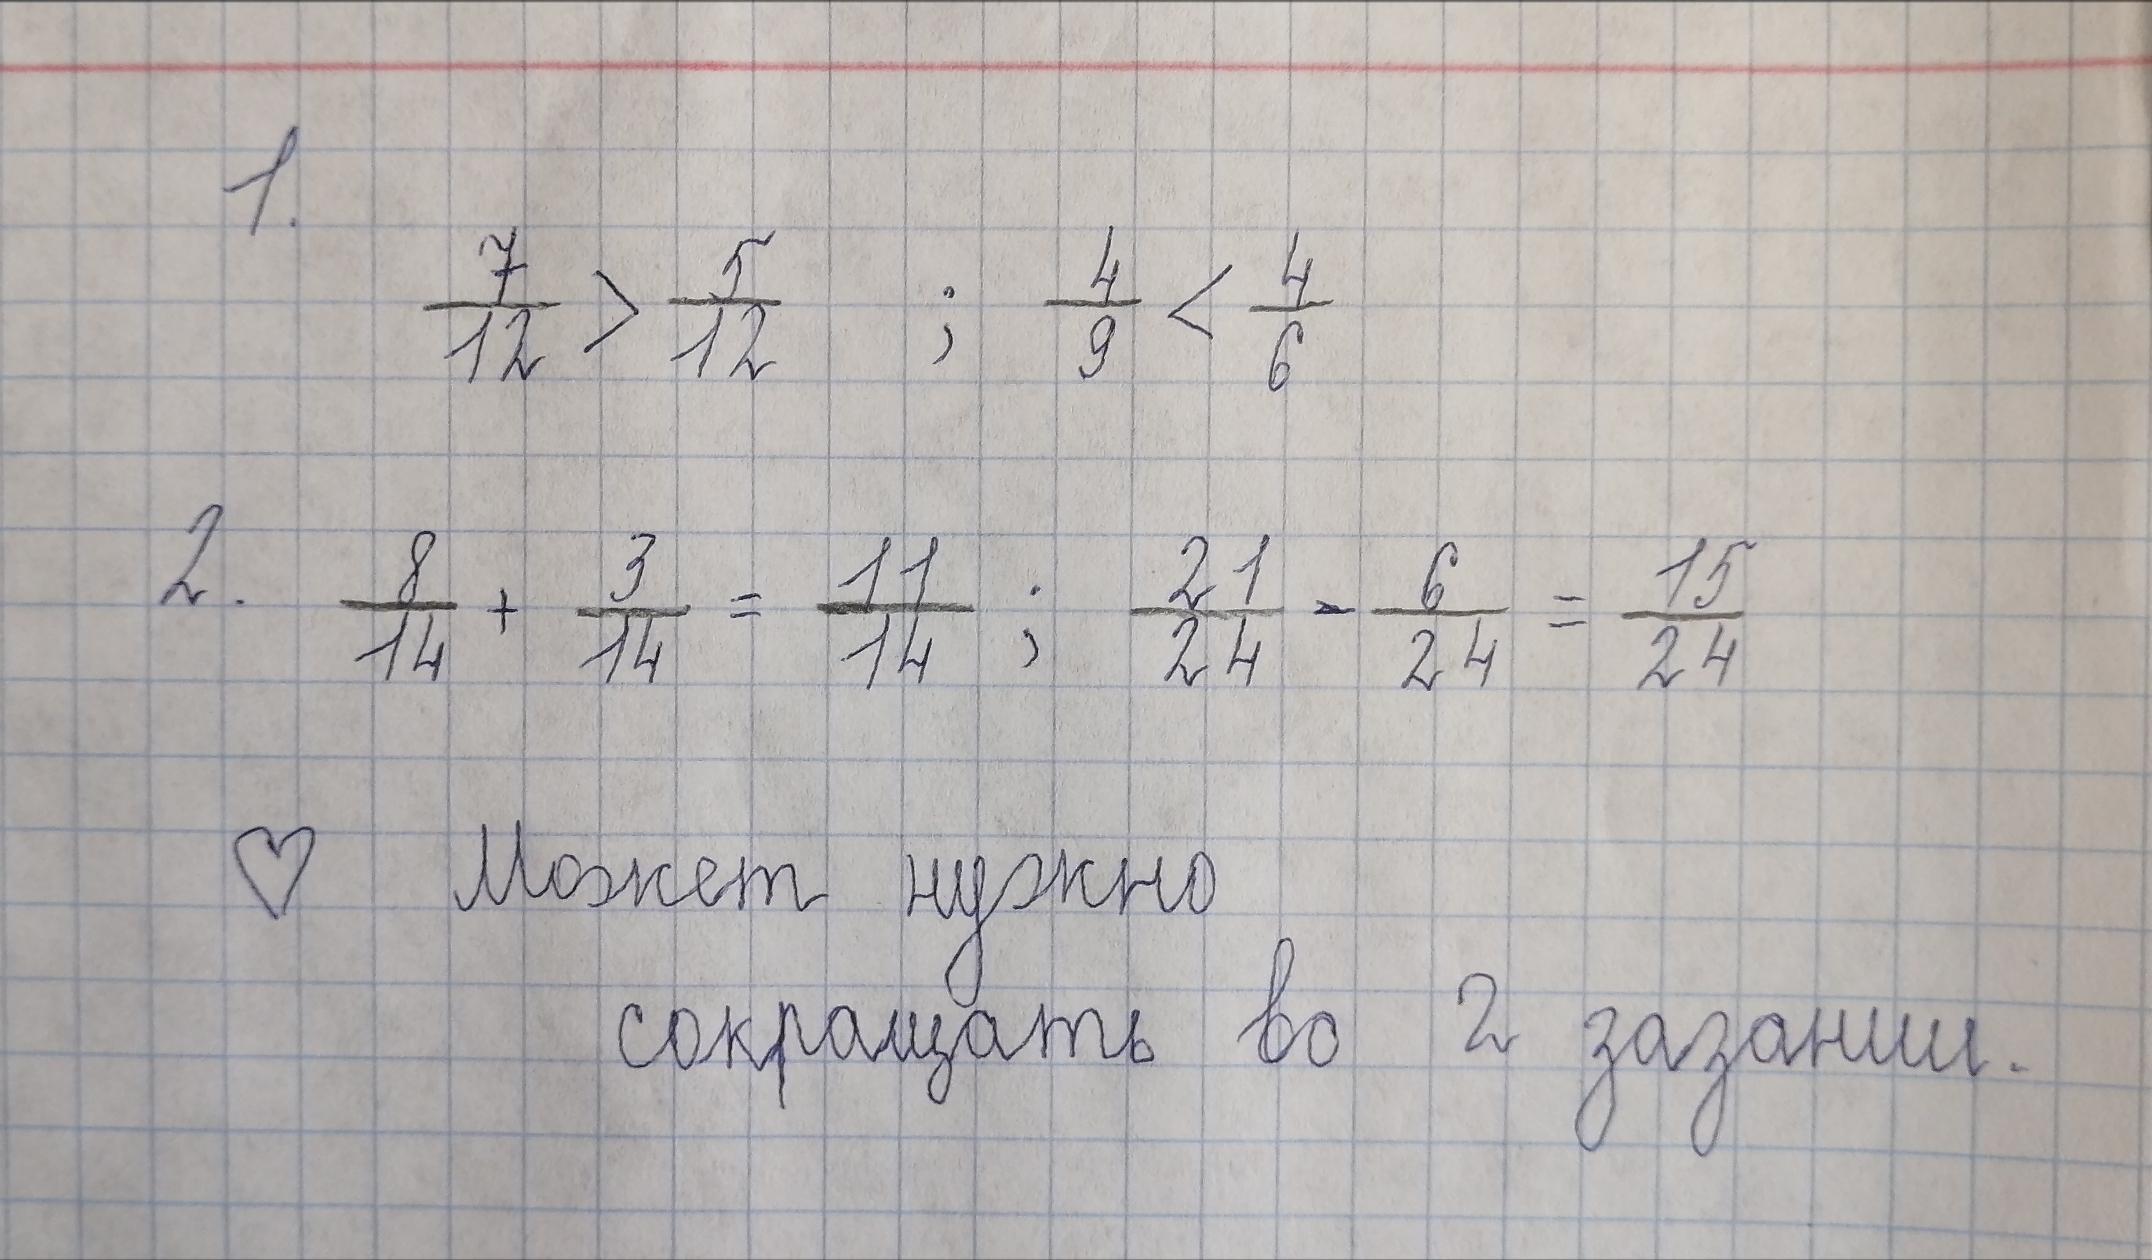 1.
7/12 > 5/12 ; 4/9 < 4/6
2. 8/14 + 3/14 = 11/14 ; 21/24 - 6/24 = 15/24
♡ Может нужно
сокращать во 2 задании.